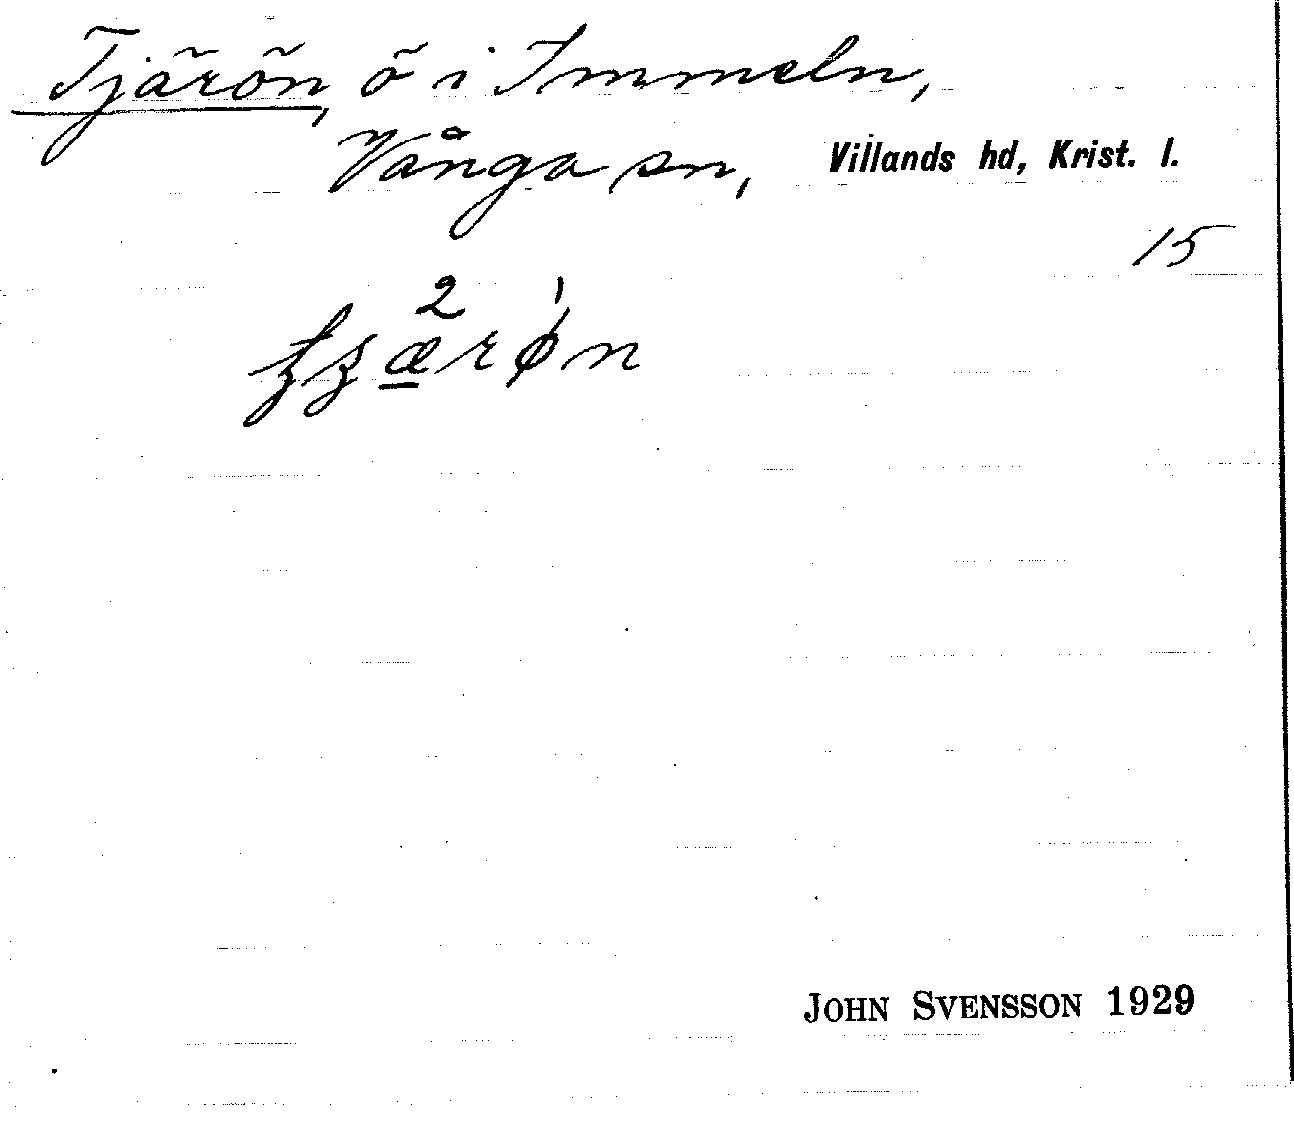 Tjärön, ö i Immeln,
Vånga sn, Villands hd, Krist. l.
15
JOHN SVENSSON 1929